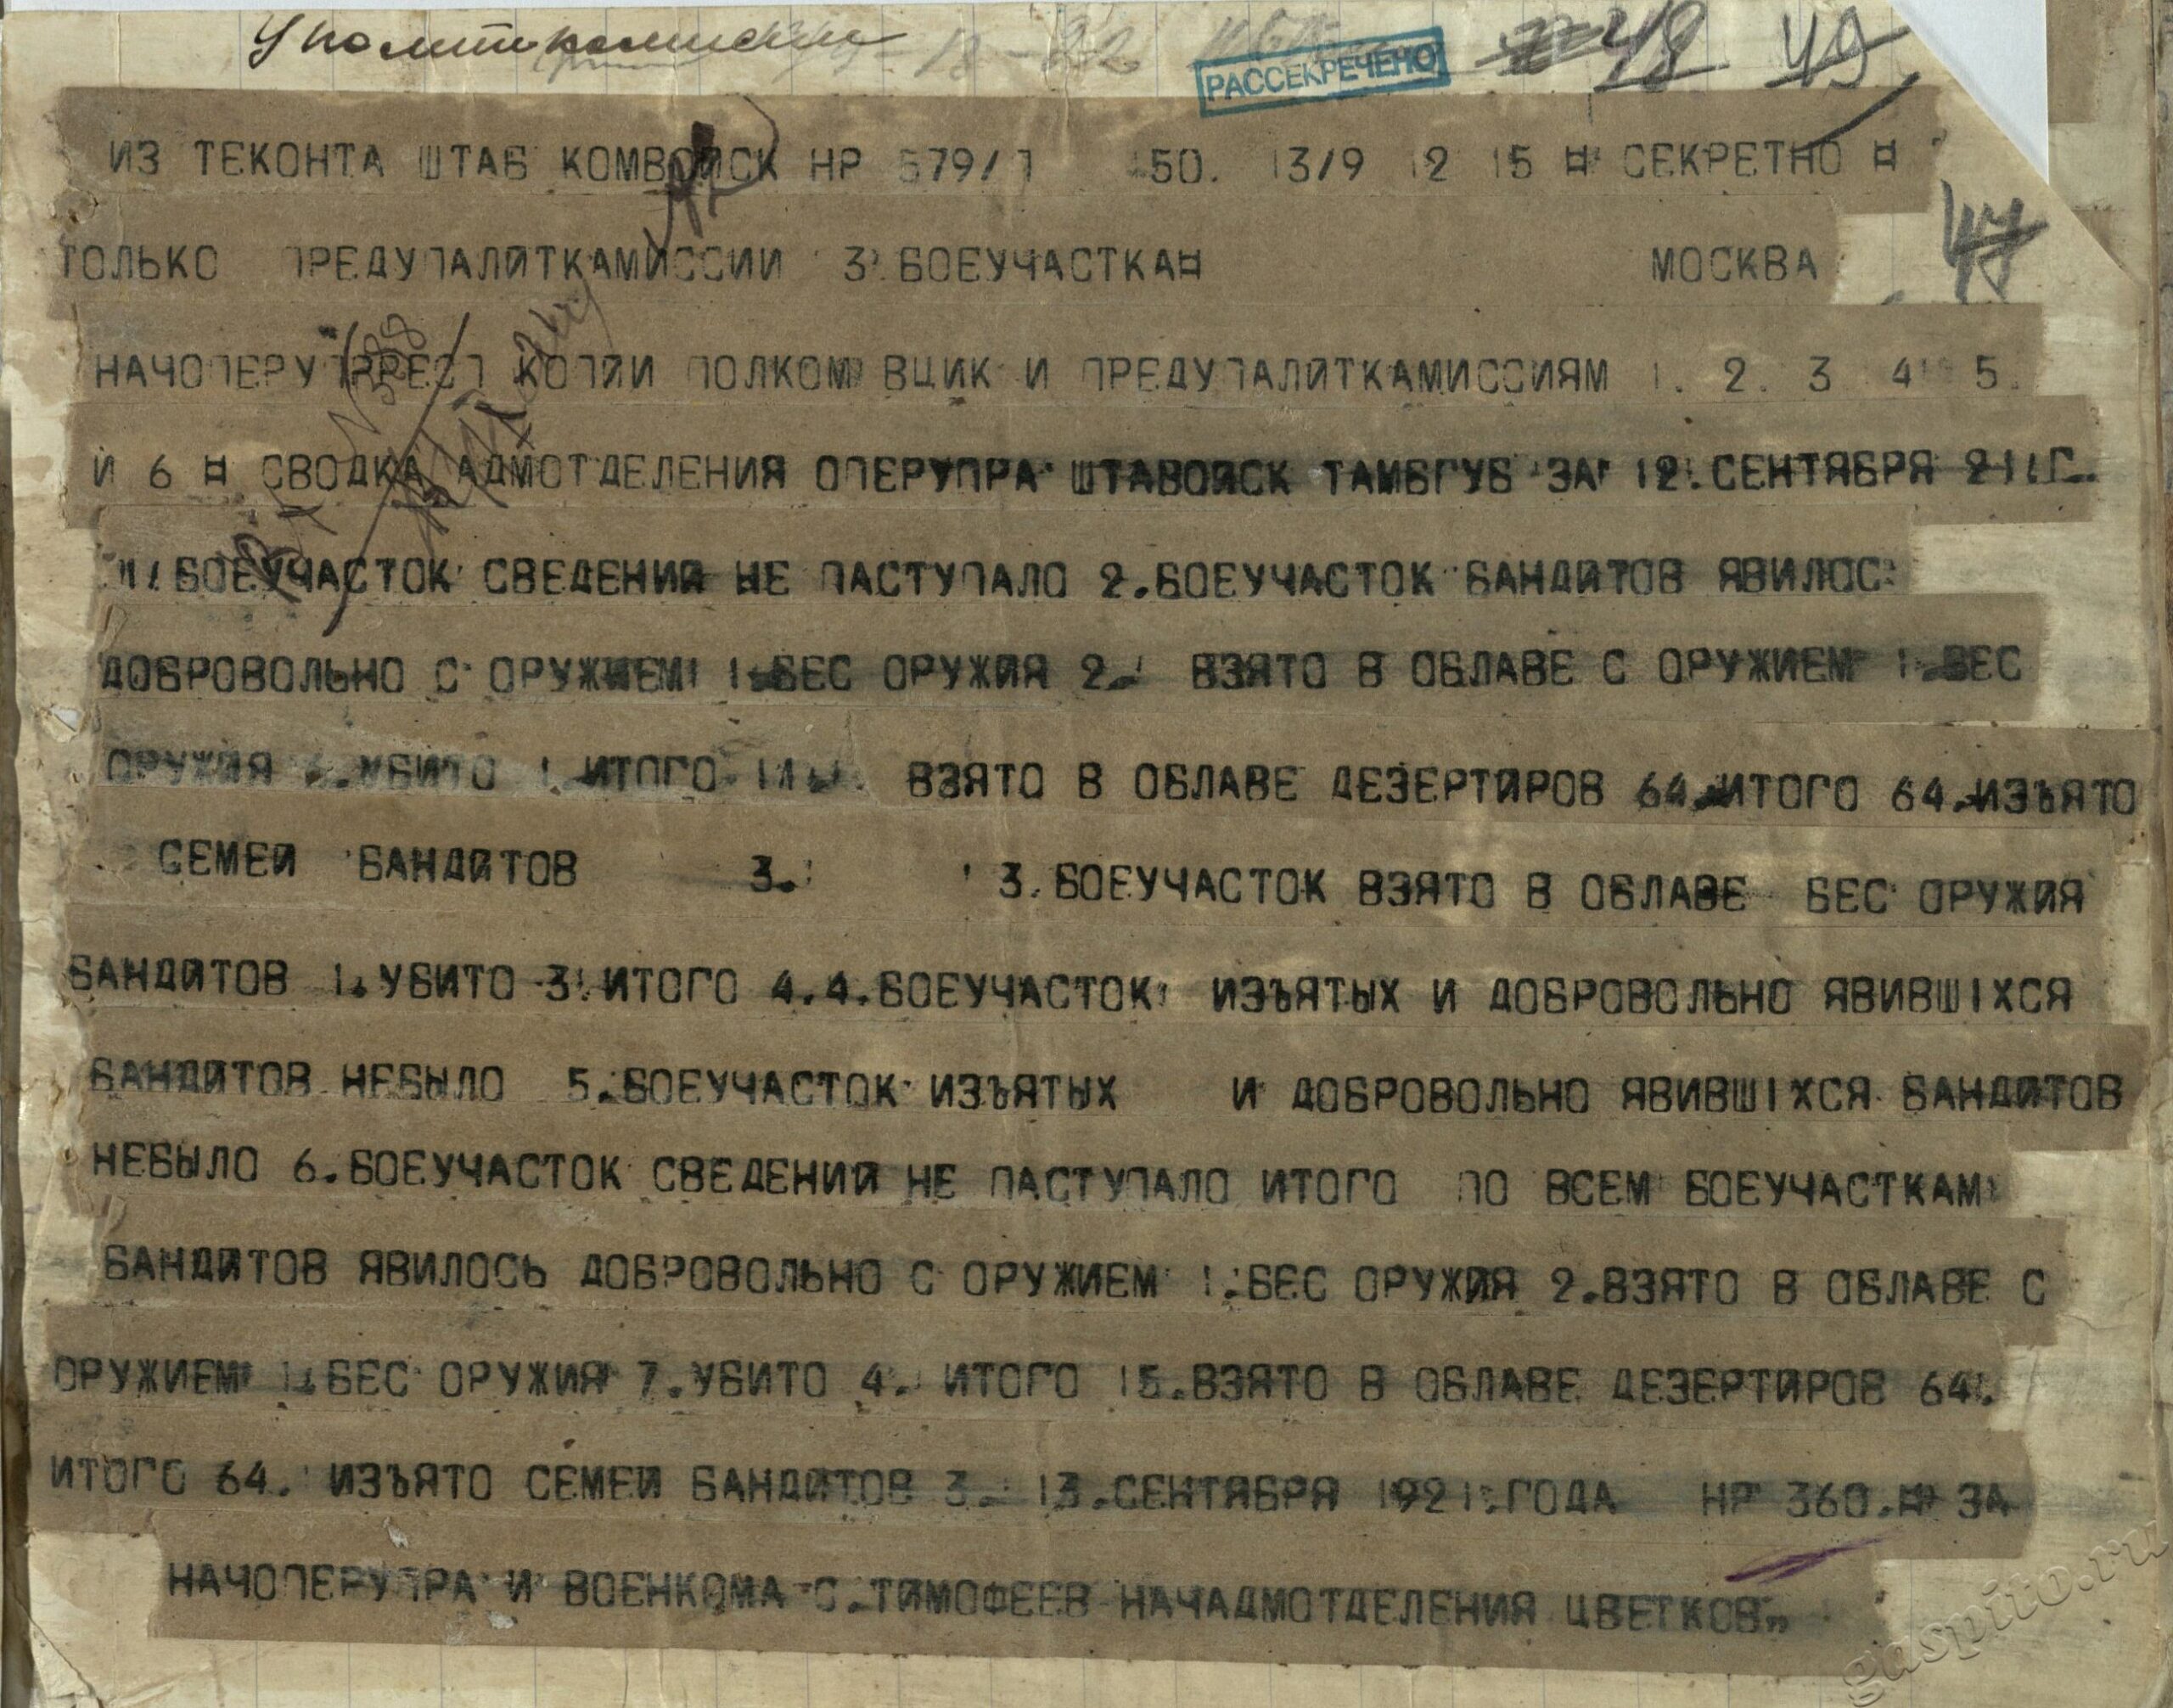 РАССЕКРЕЧЕНО
48 49
ИЗ ТЕКОНТА ШТАБ КОМВОЙСК НР 579/ 150. 13/9 12 15 ¤ СЕКРЕТНО ¤
ТОЛЬКО ПРЕДУПАЛИТКАМИССИИ 3 БОЕУЧАСТКА¤ МОСКВА
47
НАЧОПЕРУПРРЕСП КОПИИ ПОЛКОМ ВЦИК И ПРЕДУПАЛИТКАМИССИЯМ 1. 2. 3 4 5.
И 6 ¤ СВОДКА АДМОТДЕЛЕНИЯ ОПЕРУПРА ШТАВОЙСК ТАМБГУБ ЗА 12.СЕНТЯБРЯ 21.Г.
1.БОЕУЧАСТОК СВЕДЕНИЙ НЕ ПАСТУПАЛО 2.БОЕУЧАСТОК БАНДИТОВ ЯВИЛОС
ДОБРОВОЛЬНО С ОРУЖИЕМ 1.БЕС ОРУЖИЯ 2. ВЗЯТО В ОБЛАВЕ С ОРУЖИЕМ 1.БЕС
ОРУЖИЯ .УБИТО 1.ИТОГО 11. ВЗЯТО В ОБЛАВЕ ДЕЗЕРТИРОВ 64.ИТОГО 64.ИЗЪЯТО
СЕМЕЙ БАНДИТОВ 3. 3.БОЕУЧАСТОК ВЗЯТО В ОБЛАВЕ БЕС ОРУЖИЯ
БАНДИТОВ 1.УБИТО 3.ИТОГО 4.4.БОЕУЧАСТОК ИЗЪЯТЫХ И ДОБРОВОЛЬНО ЯВИВШIХСЯ
БАНДИТОВ НЕБЫЛО 5.БОЕУЧАСТОК ИЗЪЯТЫХ И ДОБРОВОЛЬНО ЯВИВШIХСЯ БАНДИТОВ
НЕБЫЛО 6.БОЕУЧАСТОК СВЕДЕНИЙ НЕ ПАСТУПАЛО ИТОГО ПО ВСЕМ БОЕУЧАСТКАМ
БАНДИТОВ ЯВИЛОСЬ ДОБРОВОЛЬНО С ОРУЖИЕМ 1.БЕС ОРУЖИЯ 2.ВЗЯТО В ОБЛАВЕ С
ОРУЖИЕМ 1.БЕС ОРУЖИЯ 7.УБИТО 4. ИТОГО 15.ВЗЯТО В ОБЛАВЕ ДЕЗЕРТИРОВ 64.
ИТОГО 64. ИЗЪЯТО СЕМЕЙ БАНДИТОВ 3. 13.СЕНТЯБРЯ 1921.ГОДА НР 360.¤ ЗА
НАЧОПЕРУПРА И ВОЕНКОМА С.ТИМОФЕЕВ НАЧАДМОТДЕЛЕНИЯ ЦВЕТКОВ„
gaspito.ru